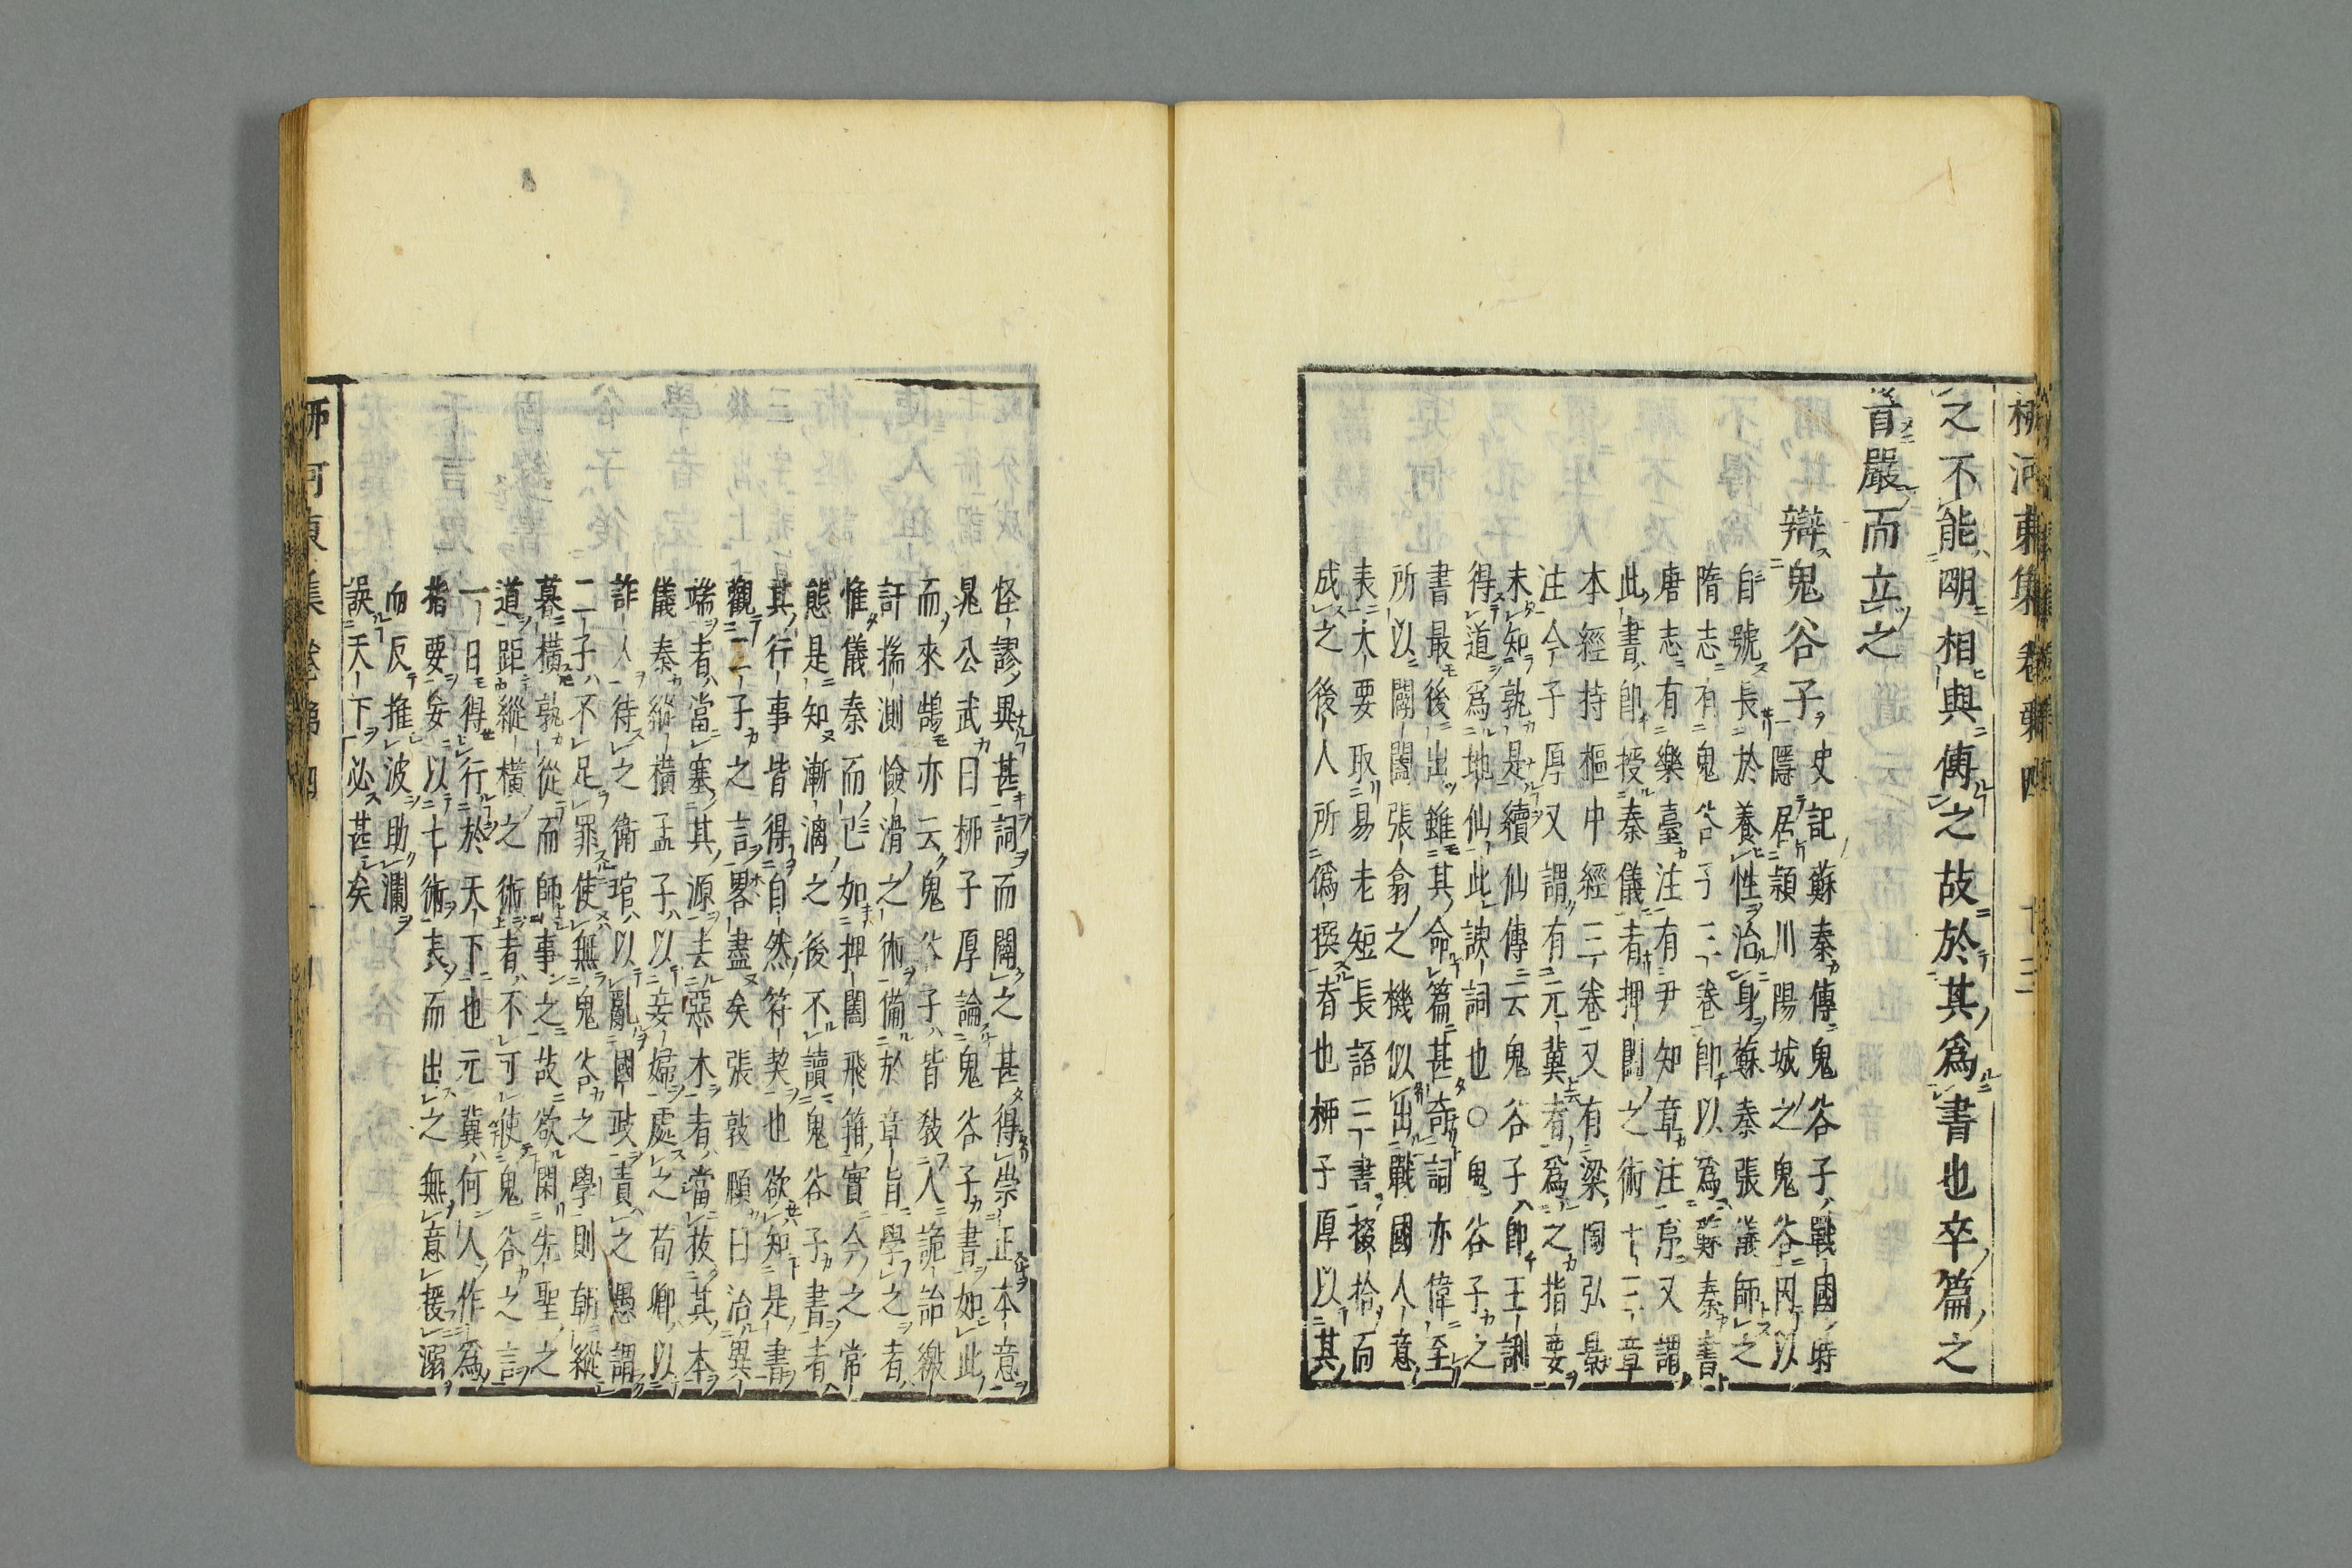 柳河東集卷第四 十三
之不能明相與傳之故於其爲書也卒篇之
首嚴而立之
辯鬼谷子
史記蘇秦傳鬼谷子戰國時
隱居潁川陽城之鬼谷因以
自號長於養性治身蘇秦張儀師之
隋志有鬼谷子三卷即以爲蘇秦書
唐志有樂臺注有尹知章注序又謂
此書即授秦儀者捭闔之術十三章
本經持樞中經三卷又有梁陶弘景
注今子厚又謂有元冀者爲之指要
未知孰是續仙傳云鬼谷子即王詡
得道爲地仙此誤詞也○鬼谷子之
書最後出雖其命篇甚奇詞亦偉至
所以闔闢張翕之機似出戰國人意
表大要取易老短長語二書掇拾而
成之後人所僞撰者也柳子厚以其
怪謬異甚詞而闢之甚得崇正本意
晁公武曰柳子厚論鬼谷子書如此
而來鵠亦云鬼谷子皆敎人詭詒繳
訐揣測憸滑之術備於章旨學之者
惟儀秦而已如捭闔飛箝實今之常
態是知漸漓之後不讀鬼谷子書者
其行事皆得自然符契也欲知是書
觀二子之言畧盡矣張敦頥曰治異
端者當塞其源去惡木者當拔其本
儀秦縱横孟子以妾婦處之荀卿以
詐人待之衛琯以亂國政責之愚謂
二子不足罪使無鬼谷之學則朝縱
暮横孰從而師事之故欲閑先聖之
道距縱横之術者不可使鬼谷之言
一日得行於天下也元冀何人作爲
指要妄以七術表而出之無意援溺
而反推波助瀾
誤天下必甚矣
柳河東集卷第四